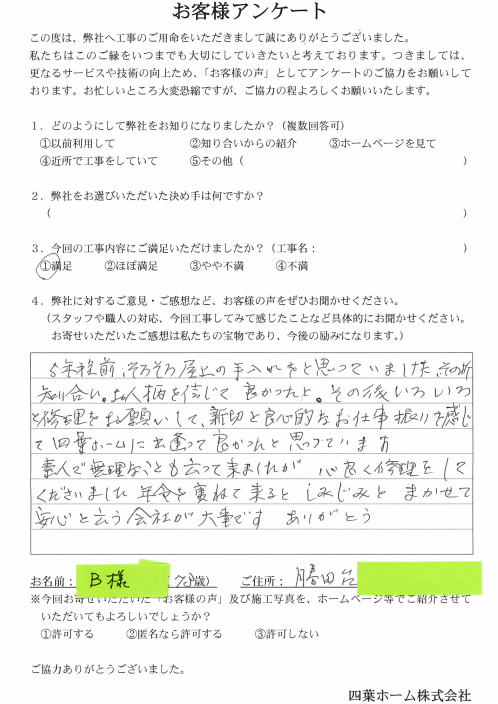 お客様アンケート
この度は、弊社へ工事のご用命をいただきまして誠にありがとうございました。
私たちはこのご縁をいつまでも大切にしていきたいと考えております。つきましては、
更なるサービスや技術の向上ため、「お客様の声」としてアンケートのご協力をお願いして
おります。お忙しいところ大変恐縮ですが、ご協力の程よろしくお願いいたします。
1．どのようにして弊社をお知りになりましたか？（複数回答可）
①以前利用して ②知り合いからの紹介 ③ホームページを見て
④近所で工事をしていて ⑤その他（ ）
2．弊社をお選びいただいた決め手は何ですか？
（ ）
3．今回の工事内容にご満足いただけましたか？（工事名： ）
①満足 ②ほぼ満足 ③やや不満 ④不満
4．弊社に対するご意見・ご感想など、お客様の声をぜひお聞かせください。
（スタッフや職人の対応、今回工事してみて感じたことなど具体的にお聞かせください。
お寄せいただいたご感想は私たちの宝物であり、今後の励みになります。）
5年程前、そろそろ屋上の手入れをと思っていました、その折
知り合い。お人柄を信じて良かったと。その後いろいろ
と修理をお願いして、親切と良心的なお仕事振りを感じ
て四葉ホームに出逢って良かったと思っています
素人で無理なことも云って来ましたが 心良く修理をして
くださいました 年令を重ねて来ると しみじみと まかせて
安心と云う会社が大事です ありがとう
お名前： B様 （73歳） ご住所： 勝田台
※今回お寄せいただいた「お客様の声」及び施工写真を、ホームページ等でご紹介させて
いただいてもよろしいでしょうか？
①許可する ②匿名なら許可する ③許可しない
ご協力ありがとうございました。
四葉ホーム株式会社